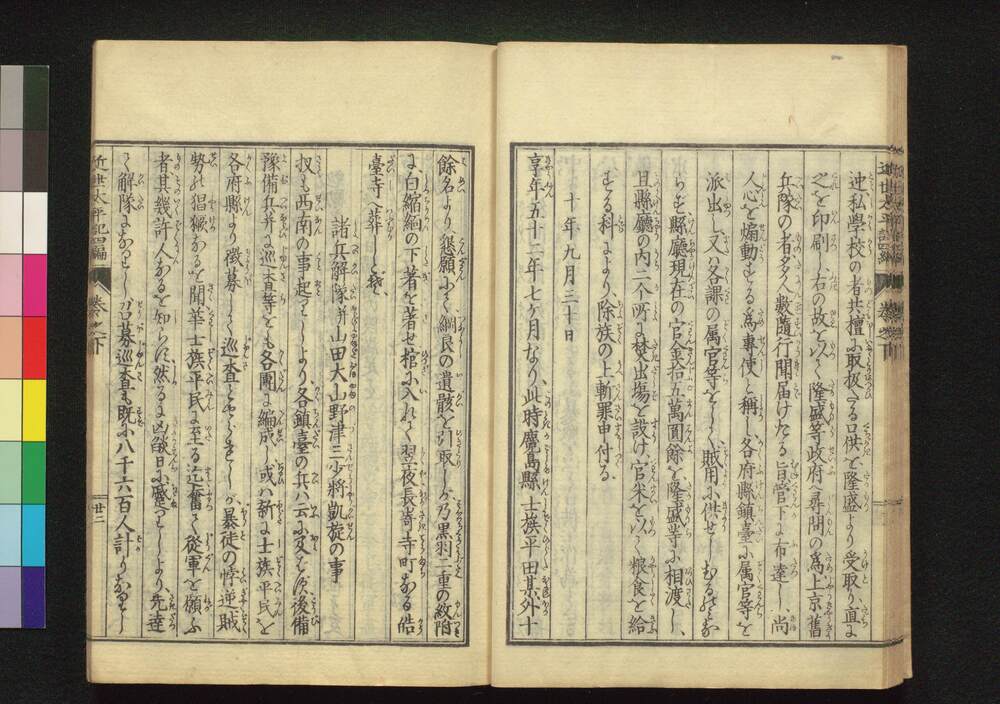 迚私學校の者共擅に取扱へる口供を隆盛より受取り直に
之を印刷し右の故を以て隆盛等政府へ尋問の爲上京舊
兵隊の者多人數隨行聞届けたる旨官下に布達し尚
人心を煽動する爲專使と稱し各府縣鎮臺に属官等を
派出し又ハ各課の属官等をして賊用に供せしむるのみな
らず縣廳現在の官金拾五萬圓餘を隆盛等に相渡し
且縣廳の内二个所に焚出場を設け官米を以て粮食を給
する科により除族の上斬罪申付る
十年九月三十日
享年五十二年七ケ月なり此時麑島縣士族平田某外十
餘名より懇願にて綱良の遺骸を引取しが乃黒羽二重の紋附
に白縮緬の下著を著せ棺に入れて翌夜長崎寺町なる皓
臺寺へ葬しとぞ
諸兵解隊并山田大山野津三少將凱旋の事
扨も西南の事起りしより各鎮臺の兵ハ云に及ばず後備
豫備兵并に巡査等をも各團に編成し或ハ新に士族平民を
各府縣より徴募して巡査とせられしが暴徒の悖逆賊
勢の猖獗なるを聞華士族平民に至る迄奮て從軍を願ふ
者其幾許人なるを知らず然るに凶燄日に蹙りしより先達
て解隊になりしが召募巡査も既に八千六百人計りなりし
近世太平記四編
巻之下
廿二